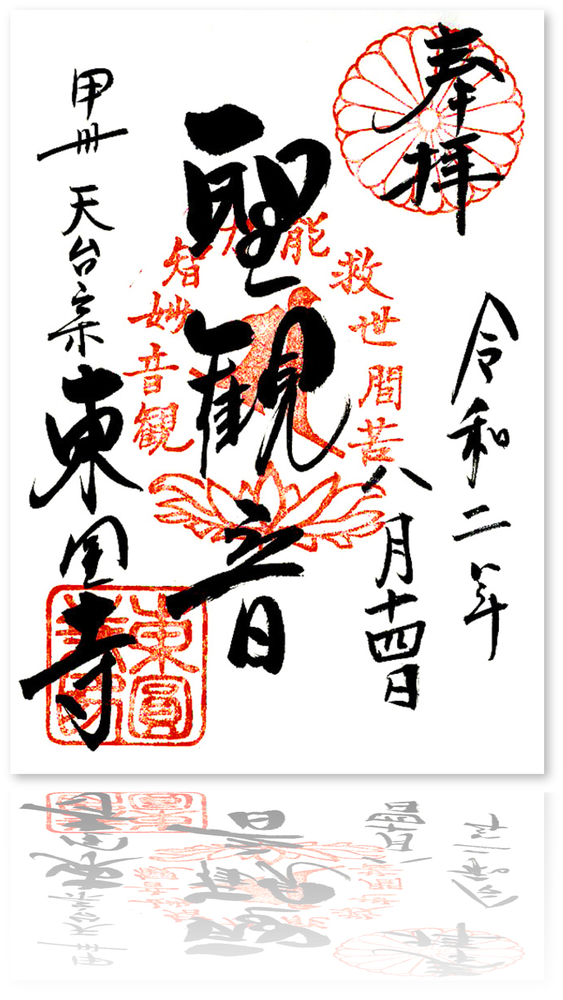 奉拝
令和二年
八月十四日
聖観音
甲州 天台宗 東圓寺
観音妙智力
能救世間苦
東圓